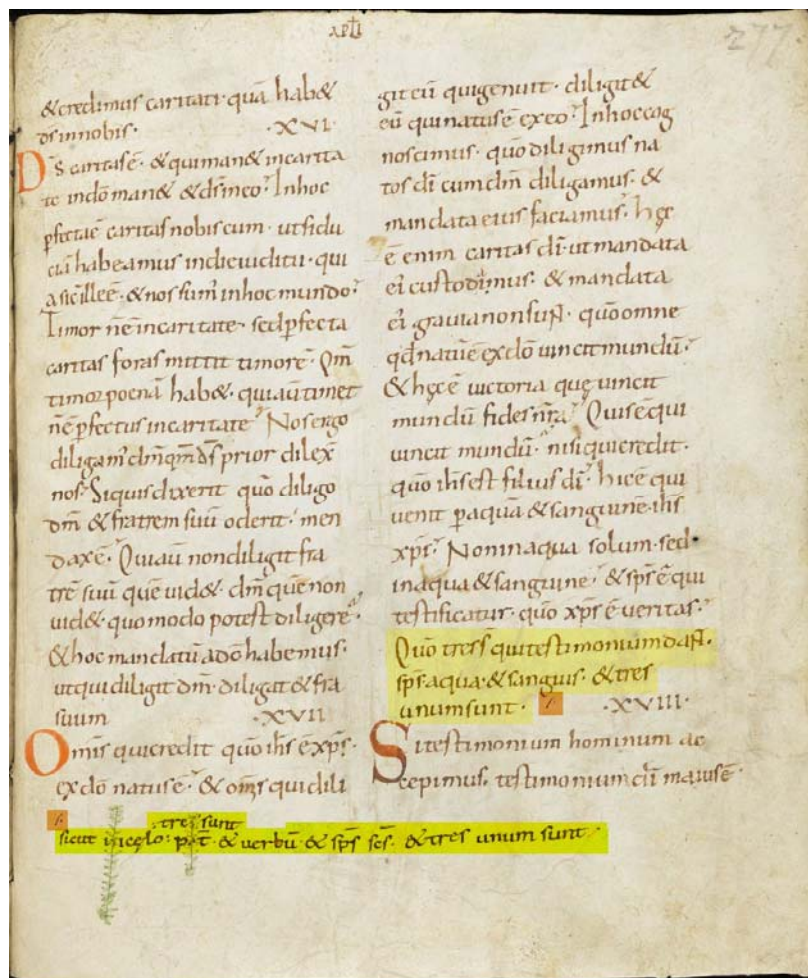 APLI
277
&credimus caritati· quā hab&
ds innobis· ·XVI·
Ds caritasē· & quiman& incarita
te indō man& &ds̄ineo· Inhoc
pfectaē caritas nobiscum· utfidu
ciā habeamus indieiudicii· qui
asic illeē· &nos sum̄ inhoc mundo·
Timor nēincaritate· sedpfecta
caritas foras mittit timorē· Qm̄
timor poenā hab&· quiaūtimet
nēpfectus incaritate Nos ergo
diligam' dm̄ qm̄ ds̄ prior dilex̄
nos· Siquis dixerit quō diligo
dm̄ & fratrem suū oderit· men
daxē· Quiaū nondiligit fra
trē suū quē uid&· dm̄ quē non
uid&· quomodo potest diligere
&hoc mandatū adō habemus·
utqui diligit dm̄· diligat & fra
suum ·XVII
Omīs quicredit quō ihs̄ ē xp̄s·
exdō natusē· & om̄s qui dili
git eū quigenuit· diligit &
eū quinatusē exeo· Inhoccog
noscimus· quō diligimus na
tos dī cum dm̄ diligamus· &
mandata eius faciamus· hęc
ē enim caritas dī· ut mandata
ei custodimus· & mandata
ei grauia nonsunt· quō omne
qd̄ natūē exdō uincit mundū·
& hęcē uictoria quę uincit
mundū fides nr̄a Quisē qui
uincit mundū· nisi quicredit·
quō ihs̄ est filius dī· hicē qui
uenit p aquā & sanguinē· ihs̄
xp̄s· Non inaqua solum· sed·
inaqua & sanguine· & sp̄s ē qui
testificatur· quō xp̄s ē ueritas·
Quō tress qui testimonium dant·
sp̄s· aqua· & sanguis· & tres
unum sunt· /· ·XVIII·
Si testimonium hominum ac
cepimus· testimonium dī maiusē·
/· tres sunt
sicut in cęlo: pat̄· & uerbū· & sp̄s sc̄s· & tres unum sunt